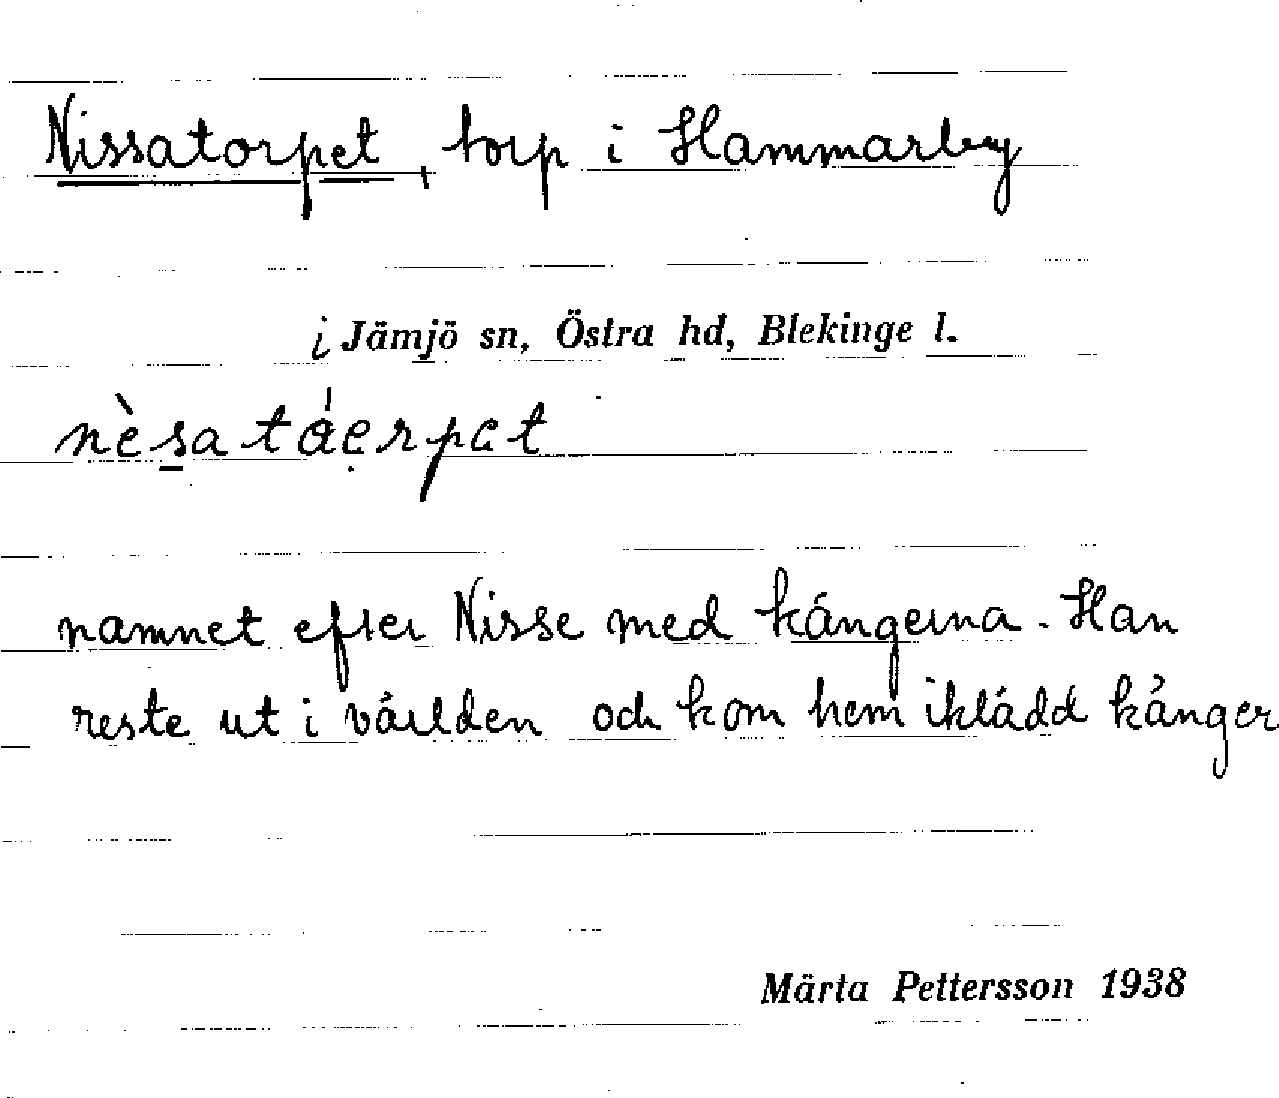 Nissatorpet, torp i Hammarby
i Jämjö sn, Östra hd, Blekinge l.
nèsatáerpet
namnet efter Nisse med kängerna. Han
reste ut i världen och kom hem iklädd känger
Märta Pettersson 1938